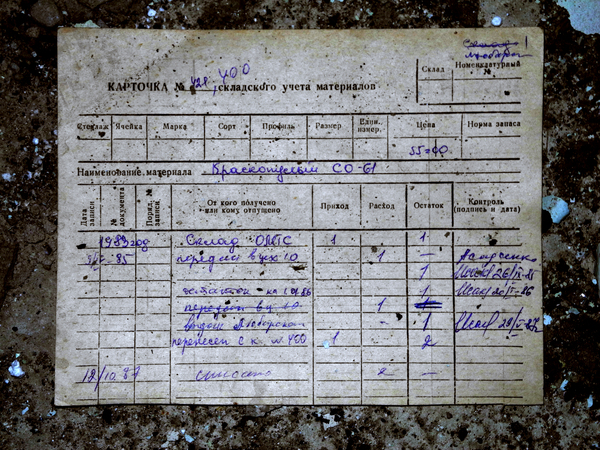 Склад 1
КАРТОЧКА № 428, 400 складского учета материалов
Склад Номенклатурный №
Стеллаж Ячейка Марка Сорт Профиль Размер Един. измер. Цена Норма запаса
55=00
Наименование материала Краскопульт СО-61
Дата записи № документа Поряд. № записи От кого получено или кому отпущено Приход Расход Остаток Контроль (подпись и дата)
1983 год Склад 1 1
85 передан в цех 10 1 —
1 26/
остаток на 1 86 1
передан в ц 10 1 1
выдан — 1
перенесен с к. № 400 1 2
12/10.87 списано 2 —